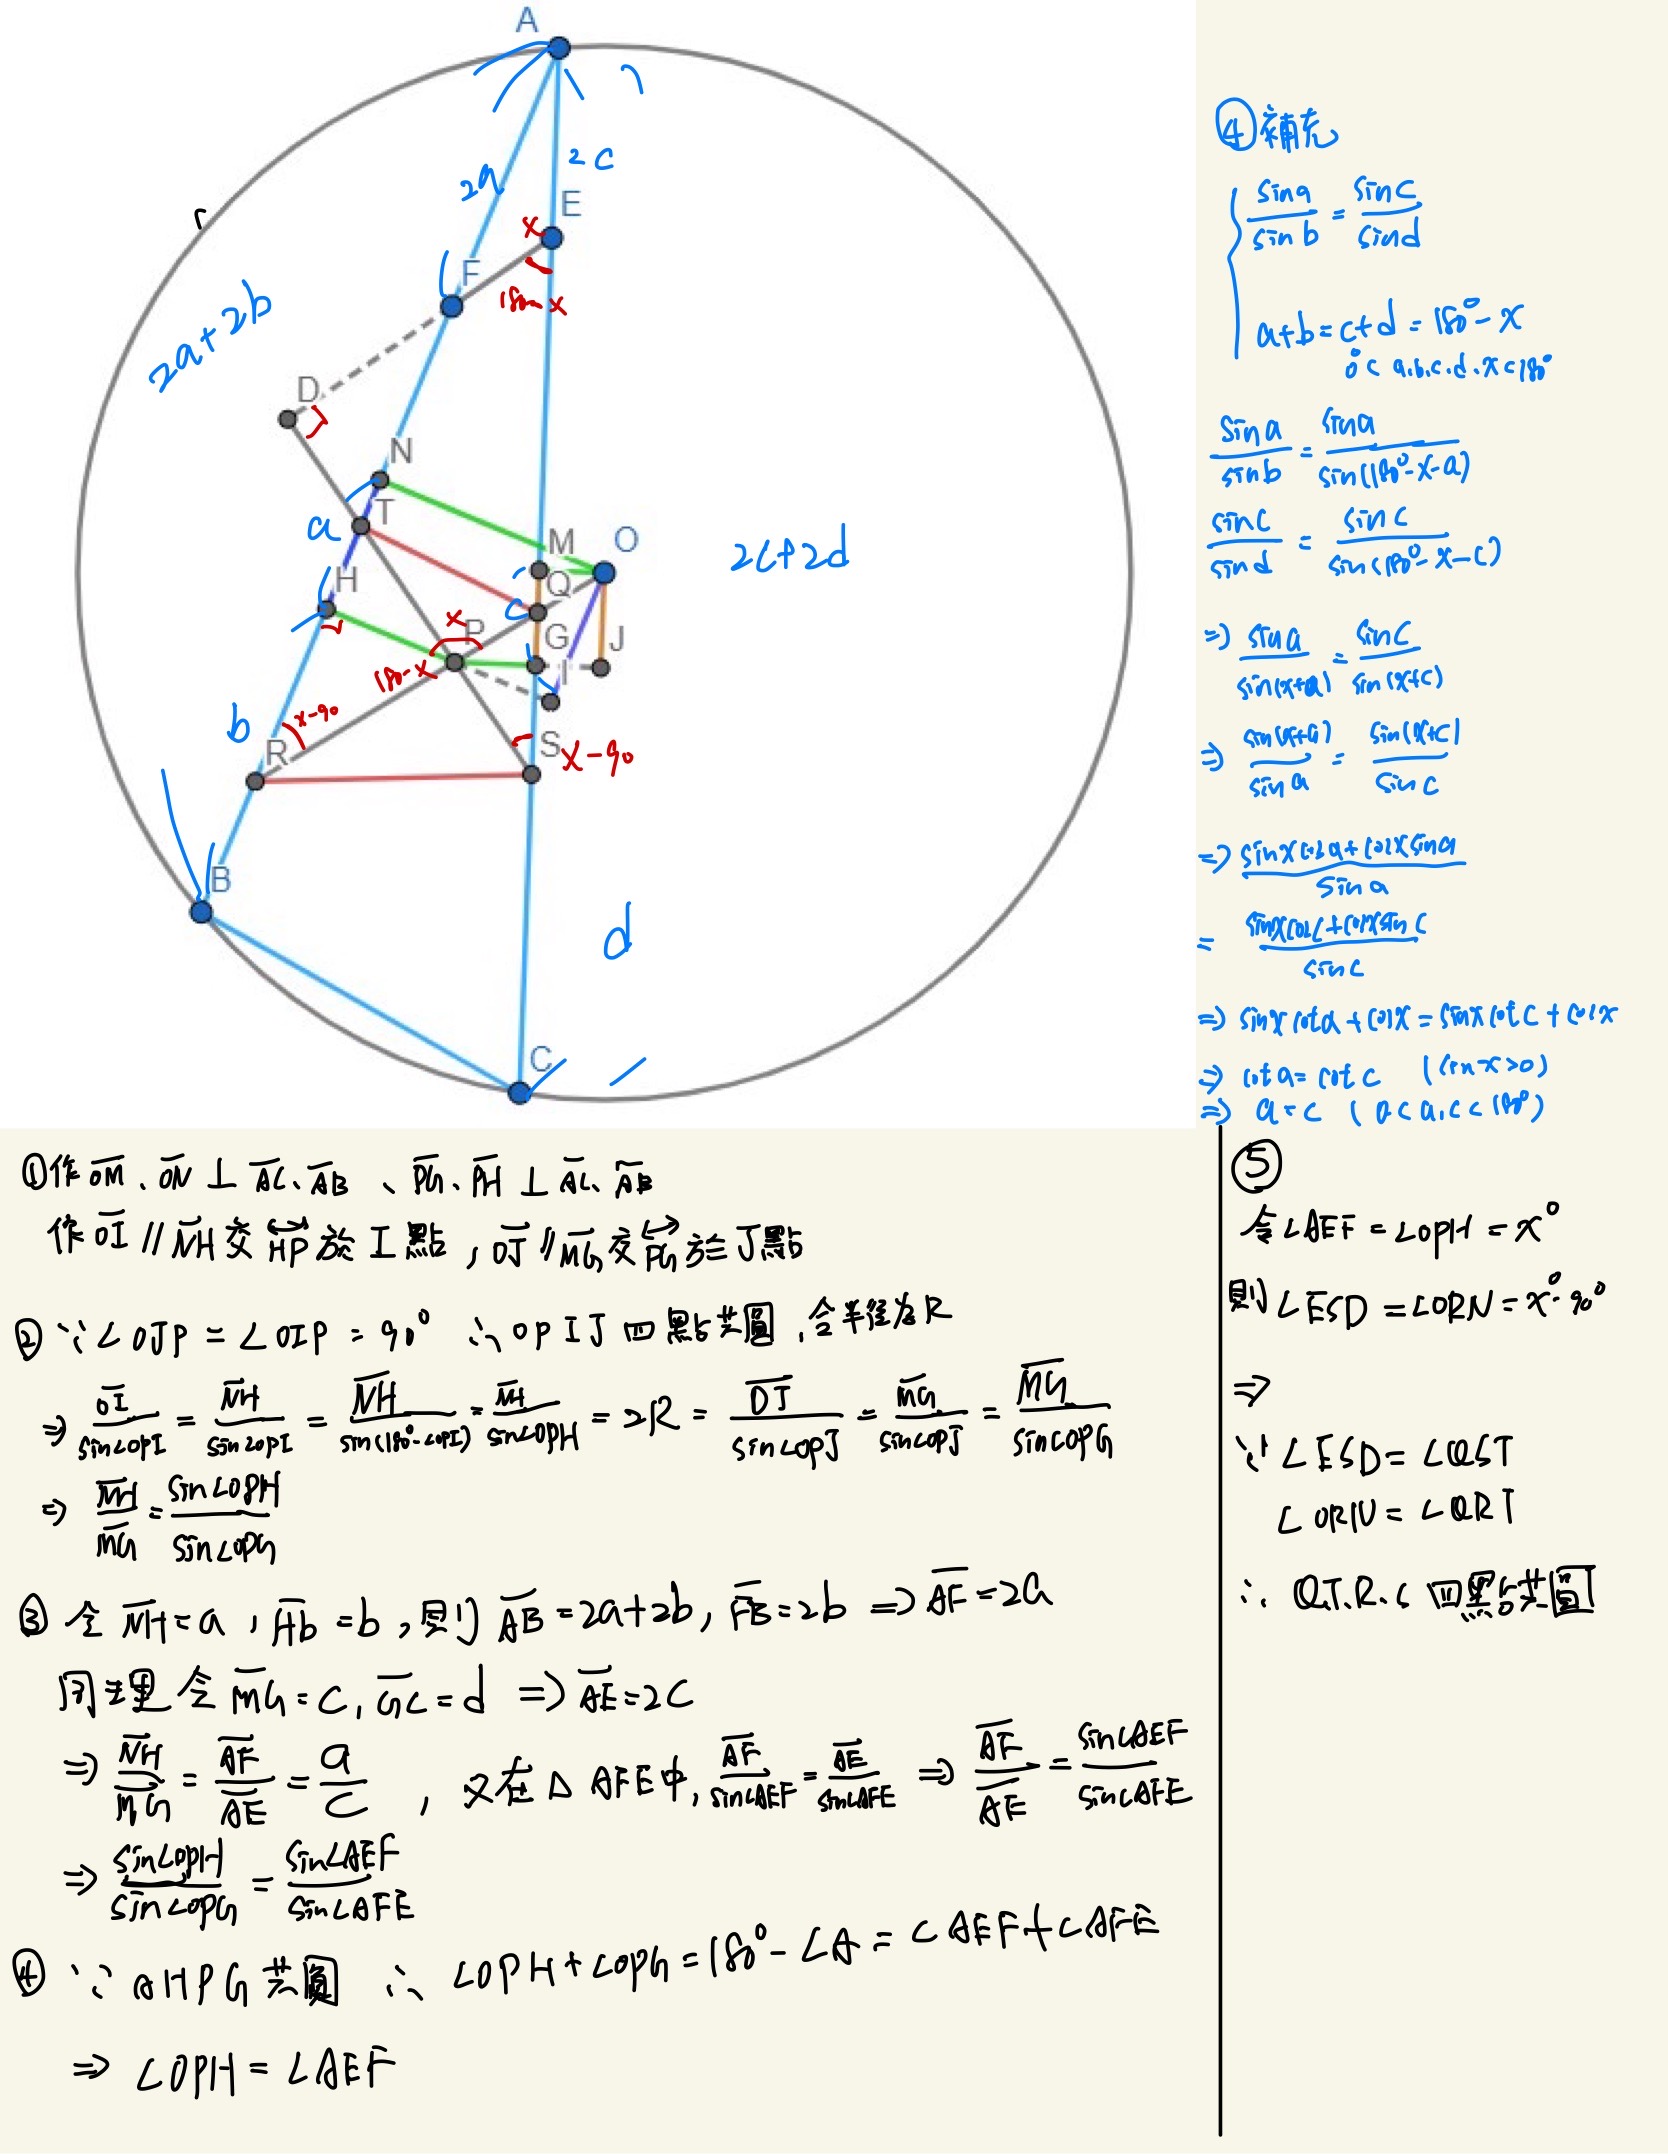 A
2a
2c
E
x
F
180-x
r
2a+2b
D
N
T
a
M
O
Q
2c+2d
H
c
x
P
G
J
I
180-x
b
x-90
R
S
x-90
B
d
C
④補充
sina/sinb = sinc/sind
a+b=c+d=180°-x
0°<a.b.c.d.x<180°
sina/sinb = sina/sin(180°-x-a)
sinc/sind = sinc/sin(180°-x-c)
⇒ sina/sin(x+a) = sinc/sin(x+c)
⇒ sin(x+a)/sina = sin(x+c)/sinc
⇒ sinxcosa+cosxsina/sina
= sinxcosc+cosxsinc/sinc
⇒ sinxcota+cosx=sinxcotc+cosx
⇒ cota=cotc (sinx>0)
⇒ a=c (0<a,c<180°)
①作OM、ON⊥AC、AB、PG、PH⊥AC、AB
作OI//NH交HP於I點,OJ//MG交PG於J點
②∵∠OJP=∠OIP=90° ∴OPIJ四點共圓,令半徑為R
⇒ OI/sin∠OPI = NH/sin∠OPI = NH/sin(180°-∠OPI) = NH/sin∠OPH = 2R = OJ/sin∠OPJ = MG/sin∠OPJ = MG/sin∠OPG
⇒ NH/MG = sin∠OPH/sin∠OPG
③令NH=a,Hb=b,則AB=2a+2b,FB=2b⇒AF=2a
同理令MG=c,GC=d⇒AE=2c
⇒ NH/MG = AF/AE = a/c ,又在△AFE中,AF/sin∠AEF = AE/sin∠AFE ⇒ AF/AE = sin∠AEF/sin∠AFE
⇒ sin∠OPH/sin∠OPG = sin∠AEF/sin∠AFE
④∵AHPG共圓 ∴∠OPH+∠OPG=180°-∠A=∠AEF+∠AFE
⇒∠OPH=∠AEF
⑤
令∠AEF=∠OPH=x°
則∠ESD=∠ORN=x°-90°
⇒
∵∠ESD=∠QST
∠ORN=∠QRT
∴Q.T.R.S四點共圓